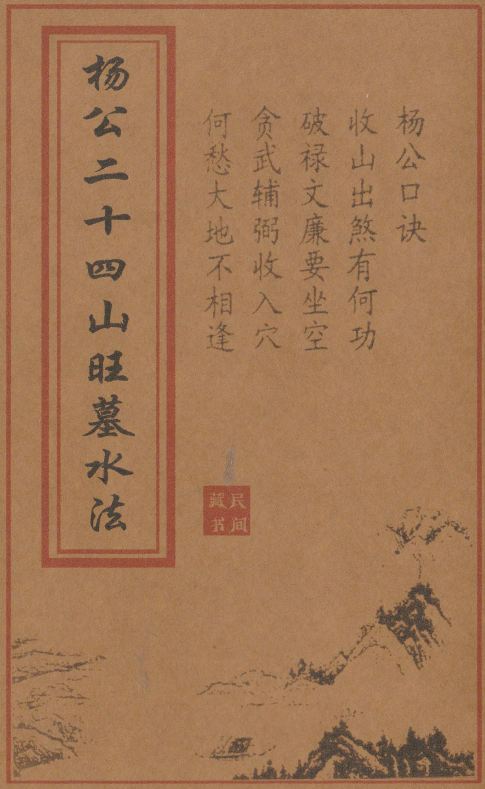 杨公口诀
收山出煞有何功
破禄文廉要坐空
贪武辅弼收入穴
何愁大地不相逢
杨公二十四山旺墓水法
民间
藏书